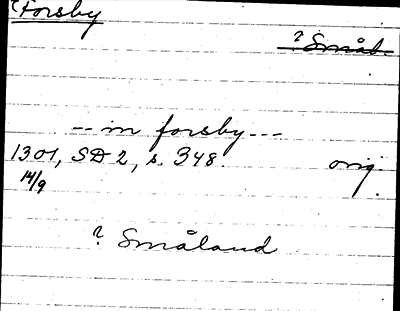 ? Forsby
? Smål.
-- in forsby ---
1301, SD 2, s. 348. orig.
14/9
? Småland